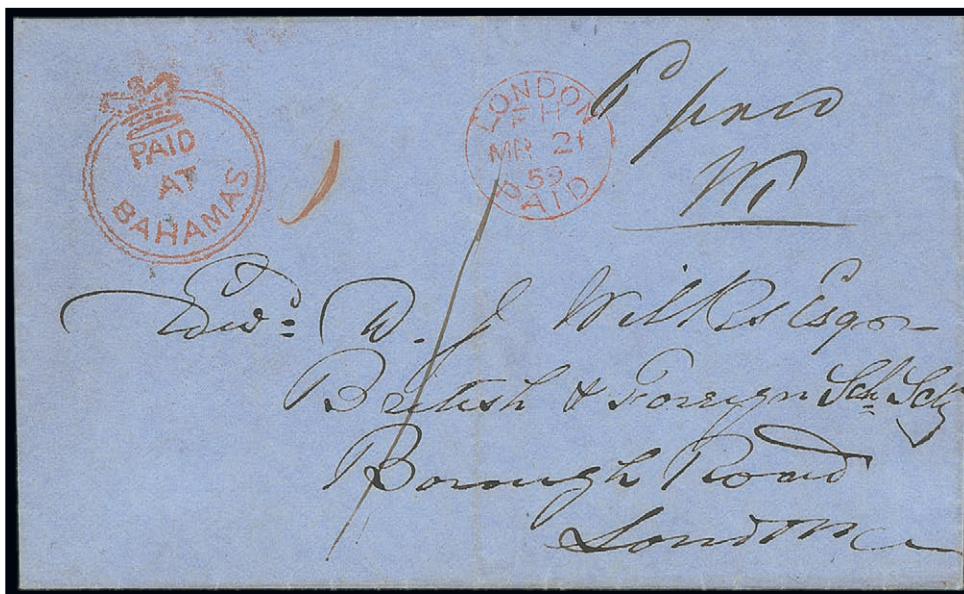 PAID
AT
BAHAMAS
LONDON
FH
MR 21
59
PAID
Edwd. D. J. Wilks Esqr
British & Foreign Sch. Scty
Borough Road
London